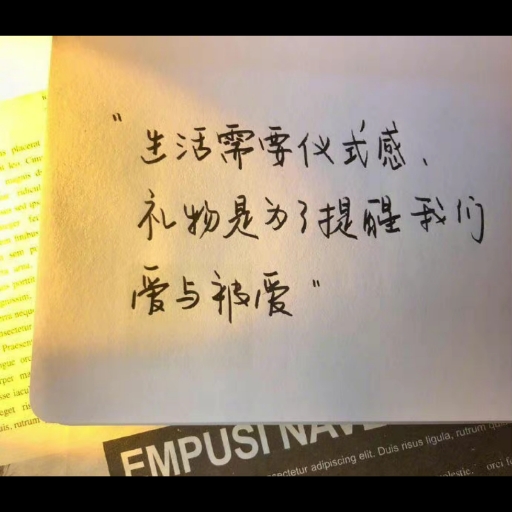 "生活需要仪式感、
礼物是为了提醒我们
爱与被爱"
EMPUSI
ectetur adipiscing elit. Duis risus ligula, rutrum